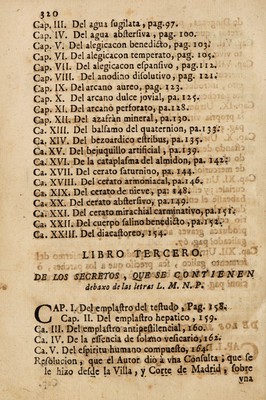 320
Cap. III. Del agua sugilata, pag. 97.
Cap. IV. Del agua abstersiva, pag. 100.
Cap. V. Del alegicacon benedicto, pag. 103.
Cap. VI. Del alegicacon temperato, pag. 105.
Cap. VII. Del alegicacon espansivo, pag. 112.
Cap. VIII. Del anodino disolutivo, pag. 121.
Cap. IX. Del arcano aureo, pag. 123.
Cap. X. Del arcano dulce jovial, pa. 125.
Cap. XI. Del arcano perforato, pa. 128.
Cap. XII. Del azafràn mineral, pa. 130.
Ca. XIII. Del balsamo del quaternion, pa. 133.
Ca. XIV. Del bezoardico estribus, pa. 135.
Ca. XV. Del bejuquillo artificial, pa. 139.
Ca. XVI. De la cataplasma del almidon, pa. 142.
Ca. XVII. Del cerato saturnino, pa. 144.
Ca. XVIII. Del cerato armoniacal, pa. 146.
Ca. XIX. Del cerato de nieve, pa. 148.
Ca. XX. Del cerato abstersivo, pa. 149.
Ca. XXI. Del cerato mirachial carminativo, pa. 151.
Ca. XXII. Del cuerpo salino benedicto, pa. 152.
Ca. XXIII. Del diacastoreo, 154.
LIBRO TERCERO.
DE LOS SECRETOS, QUE SE CONTIENEN
debaxo de las letras L. M. N. P.
CAP. I. Del emplastro del testudo, Pag. 158.
Cap. II. Del emplastro hepatico, 159.
Ca. III. Del emplastro antipestilencial, 160.
Ca. IV. De la essencia de solamo vesicario, 162.
Ca. V. Del espiritu humano compuesto, 164.
Resolucion, que el Autor diò à vna Consulta; que se
le hizo desde la Villa, y Corte de Madrid, sobre
vna